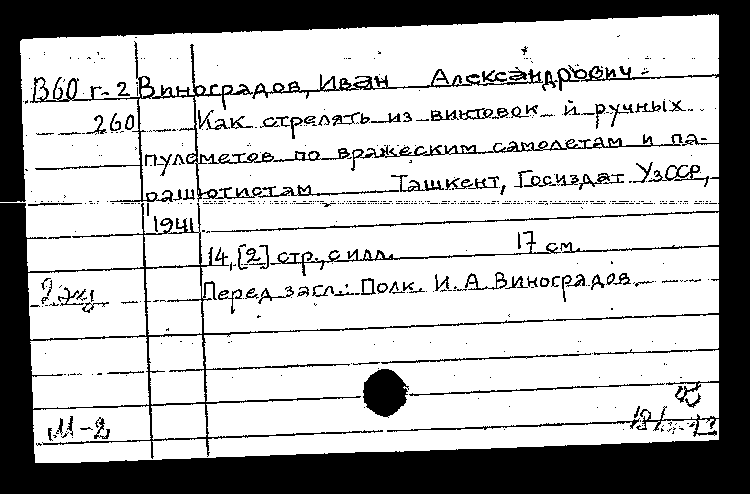 В60 г-2 Виноградов, Иван Александрович.
260 Как стрелять из винтовок и ручных
пулеметов по вражеским самолетам и па-
рашютистам Ташкент, Госиздат УзССР,
1941
14, [2] стр., с илл. 17 см.
2 экз Перед загл.: Полк. И. А. Виноградов.
М-2